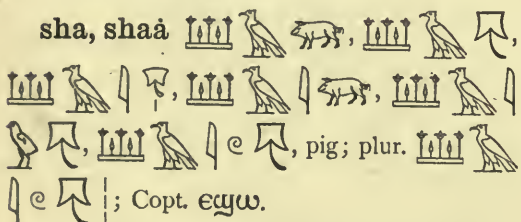 sha, shaȧ 𓆷𓄿𓃟, 𓆷𓄿𓄛,
𓆷𓄿𓇋𓄛𓏤, 𓆷𓄿𓇋𓃟, 𓆷𓄿𓇋
𓅱𓄛, 𓆷𓄿𓇋𓏲𓄛, pig; plur. 𓆷𓄿
𓇋𓏲𓄛𓏪; Copt. ⲉϣⲱ.